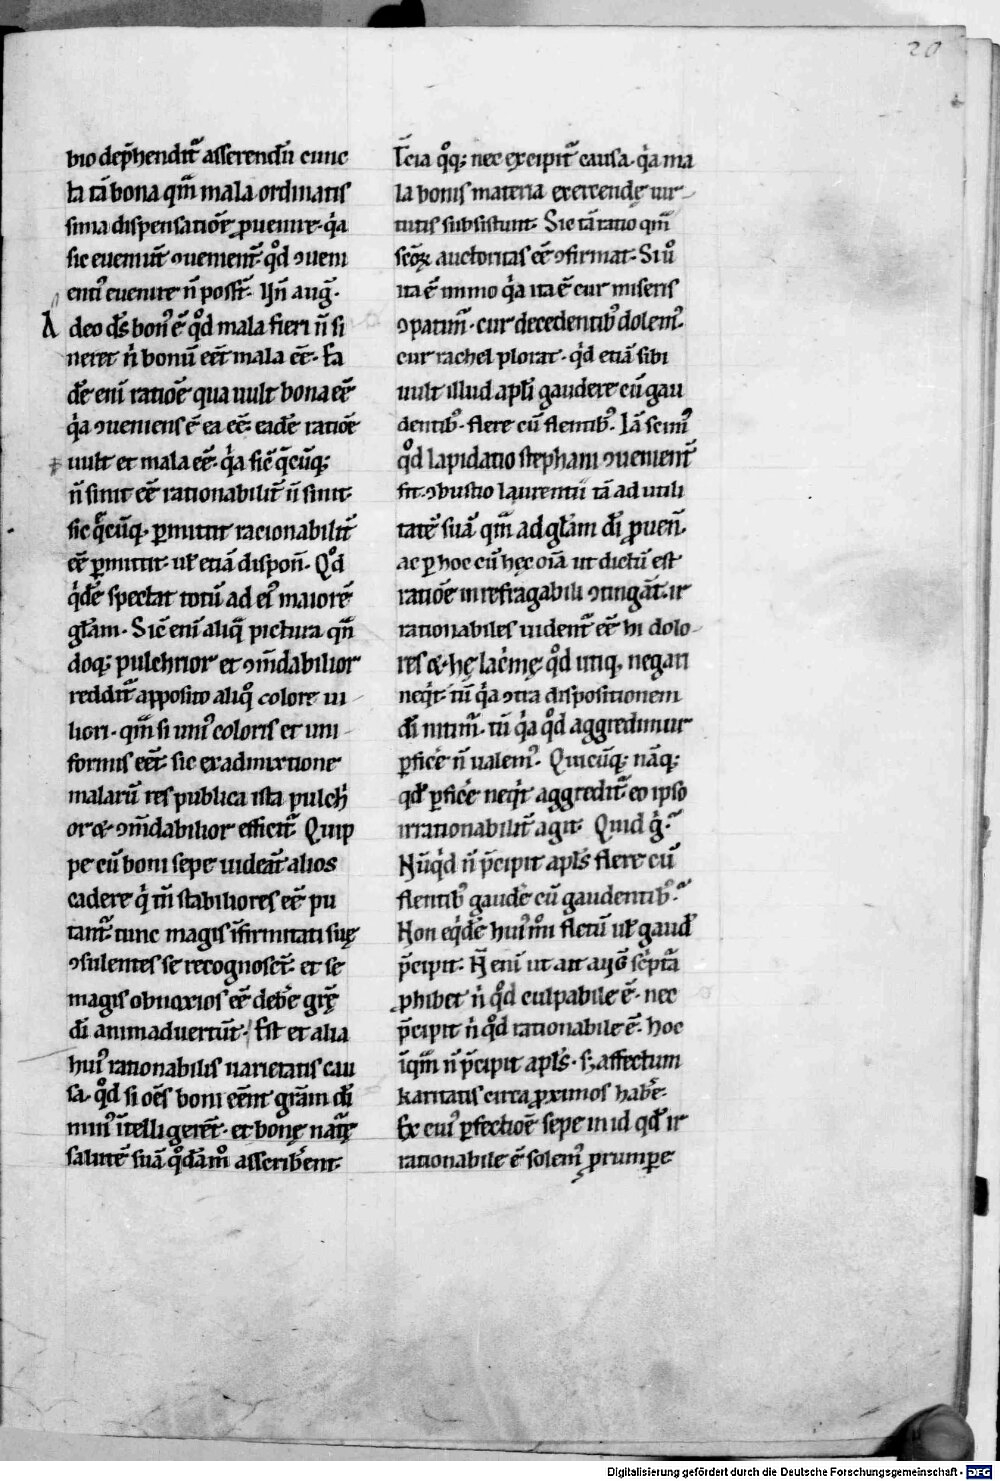 20
bio dep̄hendit᷑ asserendū cunc
ta tā bona qm̄ mala ordinatis
sima dispensatiōe ꝓuenire· qͥa
sic eueniūt ꝯueniēnt᷑ qͦd ꝯueni
entiꝰ euenire ñ possī̄t· Hīn auḡ·
A deo d̄s bonꝰ ē qͦd mala fieri ñ si
neret nͥ bonū eēt mala eē· Ea
dē eni ratiōe qua uult bona eē
qͥa ꝯueniens ē ea eē· eadē ratiōe
uult et mala eē· qͥa sic̄ q̄cūq;
ñ sinit eē rationabilit᷑ ñ sinit·
sic q̄cūq· ꝑmittit racionabilit᷑
eē ꝑmittit· uł etiā dispoñ· Qͦd
qͥdē spectat totū ad eiꝰ maiorē
gl̄am· Sic̄ eni aliq̄ pictura qn̄
doq; pulchrior et ꝯm̄dabilior
reddit᷑ apposito aliqͦ colore ui
liori· qm̄ si uniꝰ coloris et uni
formis eēt· sic ex admixtione
malarū res publica ista pulchͥ
or & ꝯm̄dabilior efficit᷑· Quip
pe cū boni sepe uideāt alios
cadere qͥ m̄ stabiliores eē pu
tant᷑· tunc magis īfirmitati suę
ꝯsulentes se recognosct̄· et se
magis obnoxios eē debe᷑ grę̄
dī animaduertūt· Est et alia
huiꝰ rationabilis uarietatis cau
sa· qͦd si oēs boni eēnt grām dī
minꝰ ītelligerēt· et bonę natᷓę
salutē suā qͦdāmͦ asscriberent·
Tcīa qͦq; nec excipit᷑ causa· qͥa ma
la bonis materia exercendę uir
tutis subsistunt· Sic tā ratio qm̄
sc̄oꝝ auctoritas eē ꝯfirmat· Si uͦ
ita ē immo qͥa ita ē cur miseris
ꝯpatimᷓ· cur decedentibꝰ dolemꝰ·
cur rachel plorat· qͥd etiā sibi
uult illud apłi gaudere cū gau
dentibꝰ· flere cū flentibꝰ· Iā scimꝰ
qͦd lapidatio stephani ꝯuenient᷑
fit· ꝯbustio laurentii tā ad utili
tatē suā qm̄ ad gl̄am dī ꝓueñ·
ac ꝑ hoc cū hęc oīa ut dictū est
ratiōe irrefragabili ꝯtingāt· ir
rationabiles uident᷑ eē hi dolo
res & hę lac̄mę qͦd utiq, negari
neqͥt· tū qͥa ꝯtra dispositionem
dī nitimᷓ· tū qͥa qͦd aggredimur
ꝑfice᷑ ñ ualemꝰ· Quicūq; nāq;
qd̄ ꝑfice᷑ neqͥt aggredit᷑ eo ipso
irrationabilit᷑ agit· Quid gͥ·?
Nūqͥd ñ p̄cipit apl̄s flere cū
flentibꝰ gaude᷑ cū gaudentibꝰ·?
Non eqͥdē huiꝰmͥ fletū uł gaud̄
p̄cipit· Ñ eni ut ait augͦ sc̄ptᷓa
ꝓhibet nͥ qͦd culpabile ē· nec
p̄cipit nͥ qͦd rationabile ē· hoc
īqm̄ ñ p̄cipit apl̄s· s; affectum
karitatis circa ꝓximos habe᷑·
Ex cuiꝰ ꝑfectiōe sepe in id qd̄ ir
rationabile ē solemꝰ ꝓrumpe᷑
Digitalisierung gefördert durch die Deutsche Forschungsgemeinschaft - DFG